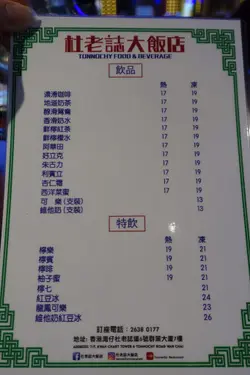 杜老誌大飯店
TONNOCHY FOOD & BEVERAGE
飲品
熱 凍
濃滑咖啡 17 19
地道奶茶 17 19
靚滑鴛鴦 17 19
香滑奶水 17 19
鮮檸紅茶 17 19
鮮檸檬水 17 19
阿華田 17 19
好立克 17 19
朱古力 17 19
利賓立 17 19
杏仁霜 17 19
西洋菜蜜 17 19
可樂(支裝) 13
維他奶(支裝) 13
特飲
熱 凍
檸樂 19 21
檸賓 19 21
檸啡 19 21
柚子蜜 19 21
檸七 21
紅豆冰 24
龍鳳可樂 23
維他奶紅豆冰 26
訂座電話: 2638 0177
地址: 香港灣仔杜老誌道6號群策大廈1樓
杜老誌大飯店
杜老誌大飯店